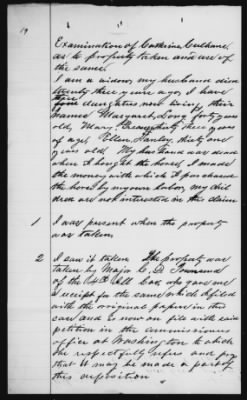 19
Examination of Catherine Culhane
as to property taken and use of
the same.
I am a widow, my husband died
twenty three years ago, I have
three daughters now living, their
names Margaret Long forty years
old, Mary thirty three years
of age, Ellen Hanley, thirty one
years old. My husband was dead
when I bought the horse, I made
the money with which I purchased
the horse by my own labor, my chil
dren are not interested in this claim
1 I was present when the property
was taken,
2 I saw it taken The property was
taken by Major C. D. Townsend
of the Ills Cav, who gave me
a receipt for the same which I filed
with the original papers in this
case and is now on file with said
petition in the commissioners
office at Washington to which
she respectfully refers and prays
that it may be made a part of
this deposition